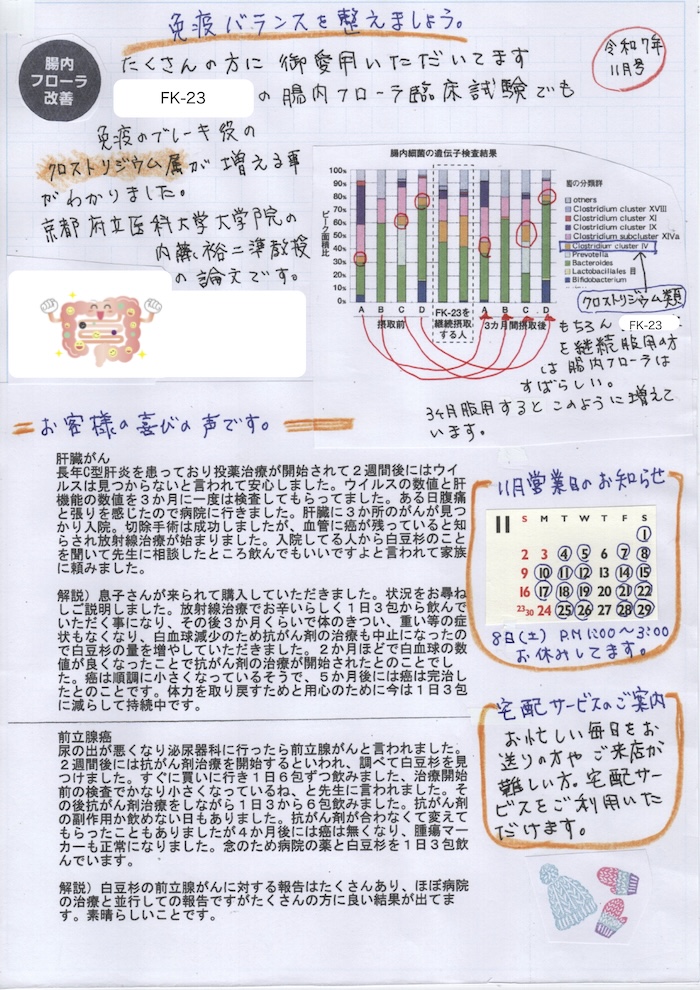 免疫バランスを整えましょう。
令和7年
11月号
腸内
フローラ
改善
たくさんの方に 御愛用いただいてます
FK-23 の腸内フローラ臨床試験でも
免疫のブレーキ役の
クロストリジウム属が増える事
がわかりました。
京都府立医科大学大学院の
内藤裕二準教授
の論文です。
腸内細菌の遺伝子検査結果
ピーク面積比
100%
90%
80%
70%
60%
50%
40%
30%
20%
10%
0%
A B C D A B C D
摂取前
FK-23を
継続摂取
する人
3カ月間摂取後
菌の分類群
others
Clostridium cluster XVIII
Clostridium cluster XI
Clostridium cluster IX
Clostridium subcluster XIVa
Clostridium cluster IV
Prevotella
Bacteroides
Lactobacillales 目
Bifidobacterium
クロストリジウム類
もちろん FK-23
を継続服用の方
は腸内フローラは
すばらしい。
3ヶ月服用するとこのように増えて
います。
お客様の喜びの声です。
肝臓がん
長年C型肝炎を患っており投薬治療が開始されて2週間後にはウイ
ルスは見つからないと言われて安心しました。ウイルスの数値と肝
機能の数値を3か月に一度は検査してもらってました。ある日腹痛
と張りを感じたので病院に行きました。肝臓に3か所のがんが見つ
かり入院。切除手術は成功しましたが、血管に癌が残っていると知
らされ放射線治療が始まりました。入院してる人から白豆杉のこと
を聞いて先生に相談したところ飲んでもいいですよと言われて家族
に頼みました。
解説）息子さんが来られて購入していただきました。状況をお尋ね
しご説明しました。放射線治療でお辛いらしく1日3包から飲んで
いただく事になり、その後3か月くらいで体のきつい、重い等の症
状もなくなり、白血球減少のため抗がん剤の治療も中止になったの
で白豆杉の量を増やしていただきました。2か月ほどで白血球の数
値が良くなったことで抗がん剤の治療が開始されたとのことでし
た。癌は順調に小さくなっているそうで、5か月後には癌は完治し
たとのことです。体力を取り戻すためと用心のために今は1日3包
に減らして持続中です。
前立腺癌
尿の出が悪くなり泌尿器科に行ったら前立腺がんと言われました。
2週間後には抗がん剤治療を開始するといわれ、調べて白豆杉を見
つけました。すぐに買いに行き1日6包ずつ飲みました、治療開始
前の検査でかなり小さくなっているね、と先生に言われました。そ
の後抗がん剤治療をしながら1日3から6包飲みました。抗がん剤
の副作用か飲めない日もありました。抗がん剤が合わなくて変えて
もらったこともありましたが4か月後には癌は無くなり、腫瘍マー
カーも正常になりました。念のため病院の薬と白豆杉を1日3包飲
んでいます。
解説）白豆杉の前立腺がんに対する報告はたくさんあり、ほぼ病院
の治療と並行しての報告ですがたくさんの方に良い結果が出てま
す。素晴らしいことです。
11月営業日のお知らせ
11 S M T W T F S
1
2 3 4 5 6 7 8
9 10 11 12 13 14 15
16 17 18 19 20 21 22
23 30 24 25 26 27 28 29
8日(土) P.M 1:00〜3:00
お休みしてます。
宅配サービスのご案内
お忙しい毎日をお
送りの方や ご来店が
難しい方。宅配サー
ビスをご利用いた
だけます。